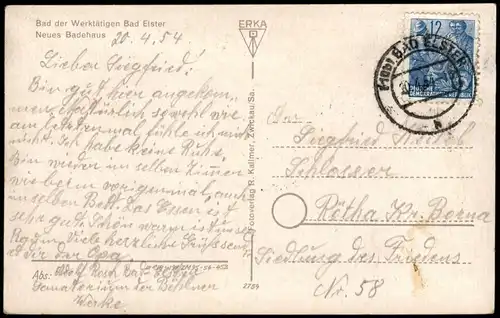 Bad der Werktätigen Bad Elster
Neues Badehaus
20.4.54
Lieber Siegfried!
Bin gut hier angekom-
men, natürlich so wohl wie
am erstenmal, fühle ich mich
nicht. Ich habe keine Ruhe,
bin wieder im selben Zimmer
wie beim vorigenmal, auch
im selben Bett. Das Essen ist
sehr gut. Schön warm ist unser
Raum. Viele herzliche Grüsse sendet
dir der Opa
Abs:
Bad Elster
Sanatorium der Böhlner
Werke
ERKA
Fotoverlag R. Kallmer, Zwickau/Sa.
2754
12
DEUTSCHE
DEMOKRATISCHE REPUBLIK
(10b) BAD ELSTER
Siegfried
Schlosser
Rötha Kr. Borna
Siedlung des Friedens
Nr. 58